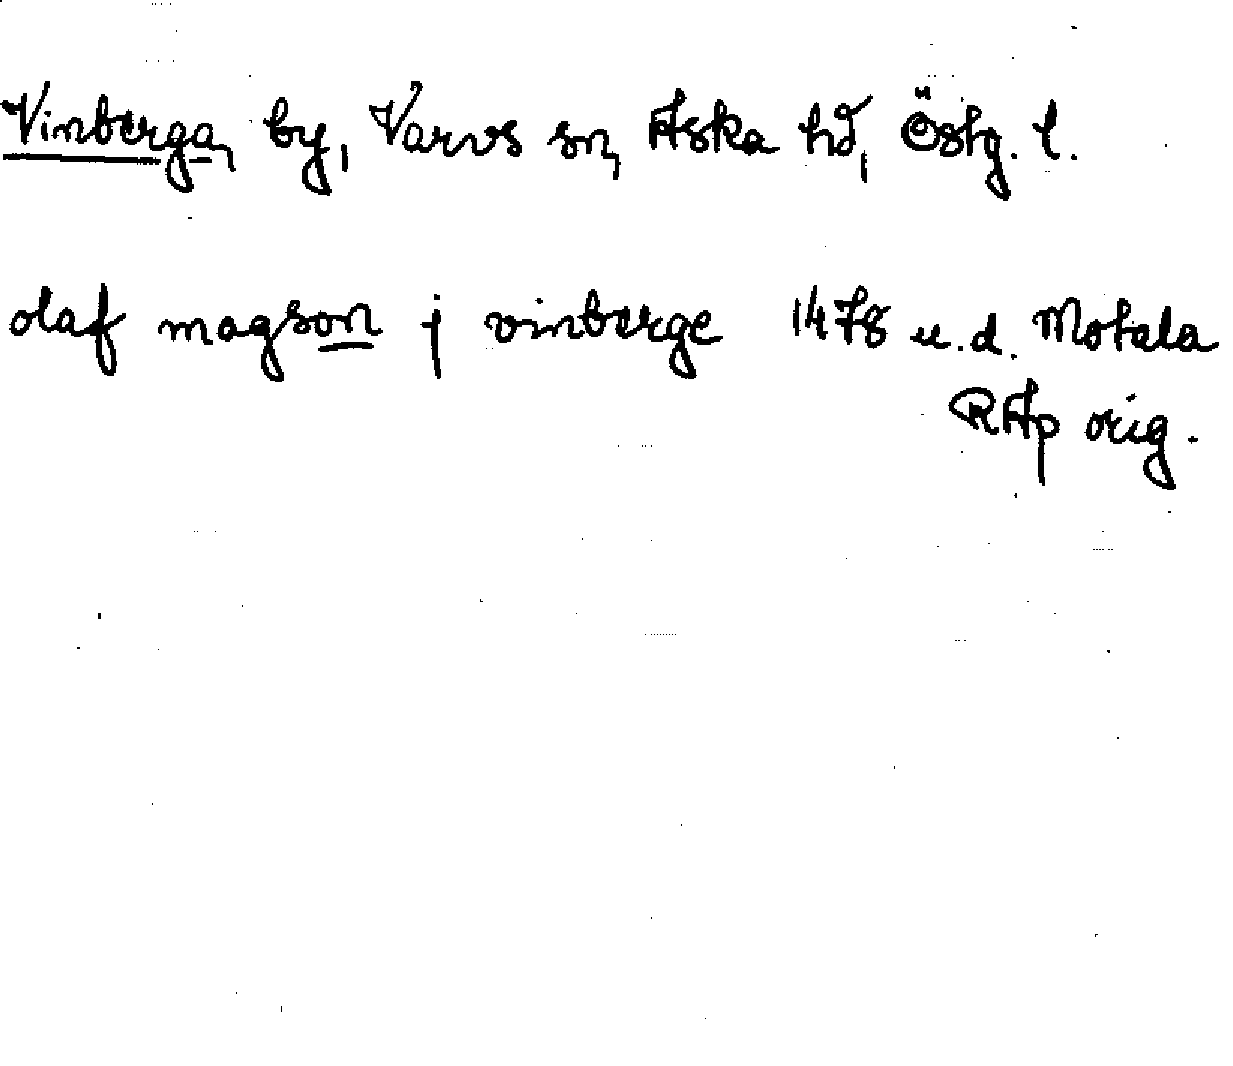 Vinberga, by, Varvs sn, Aska hd, Östg. l.
olaf magson j vinberge 1478 u.d. Motala
RAp orig.